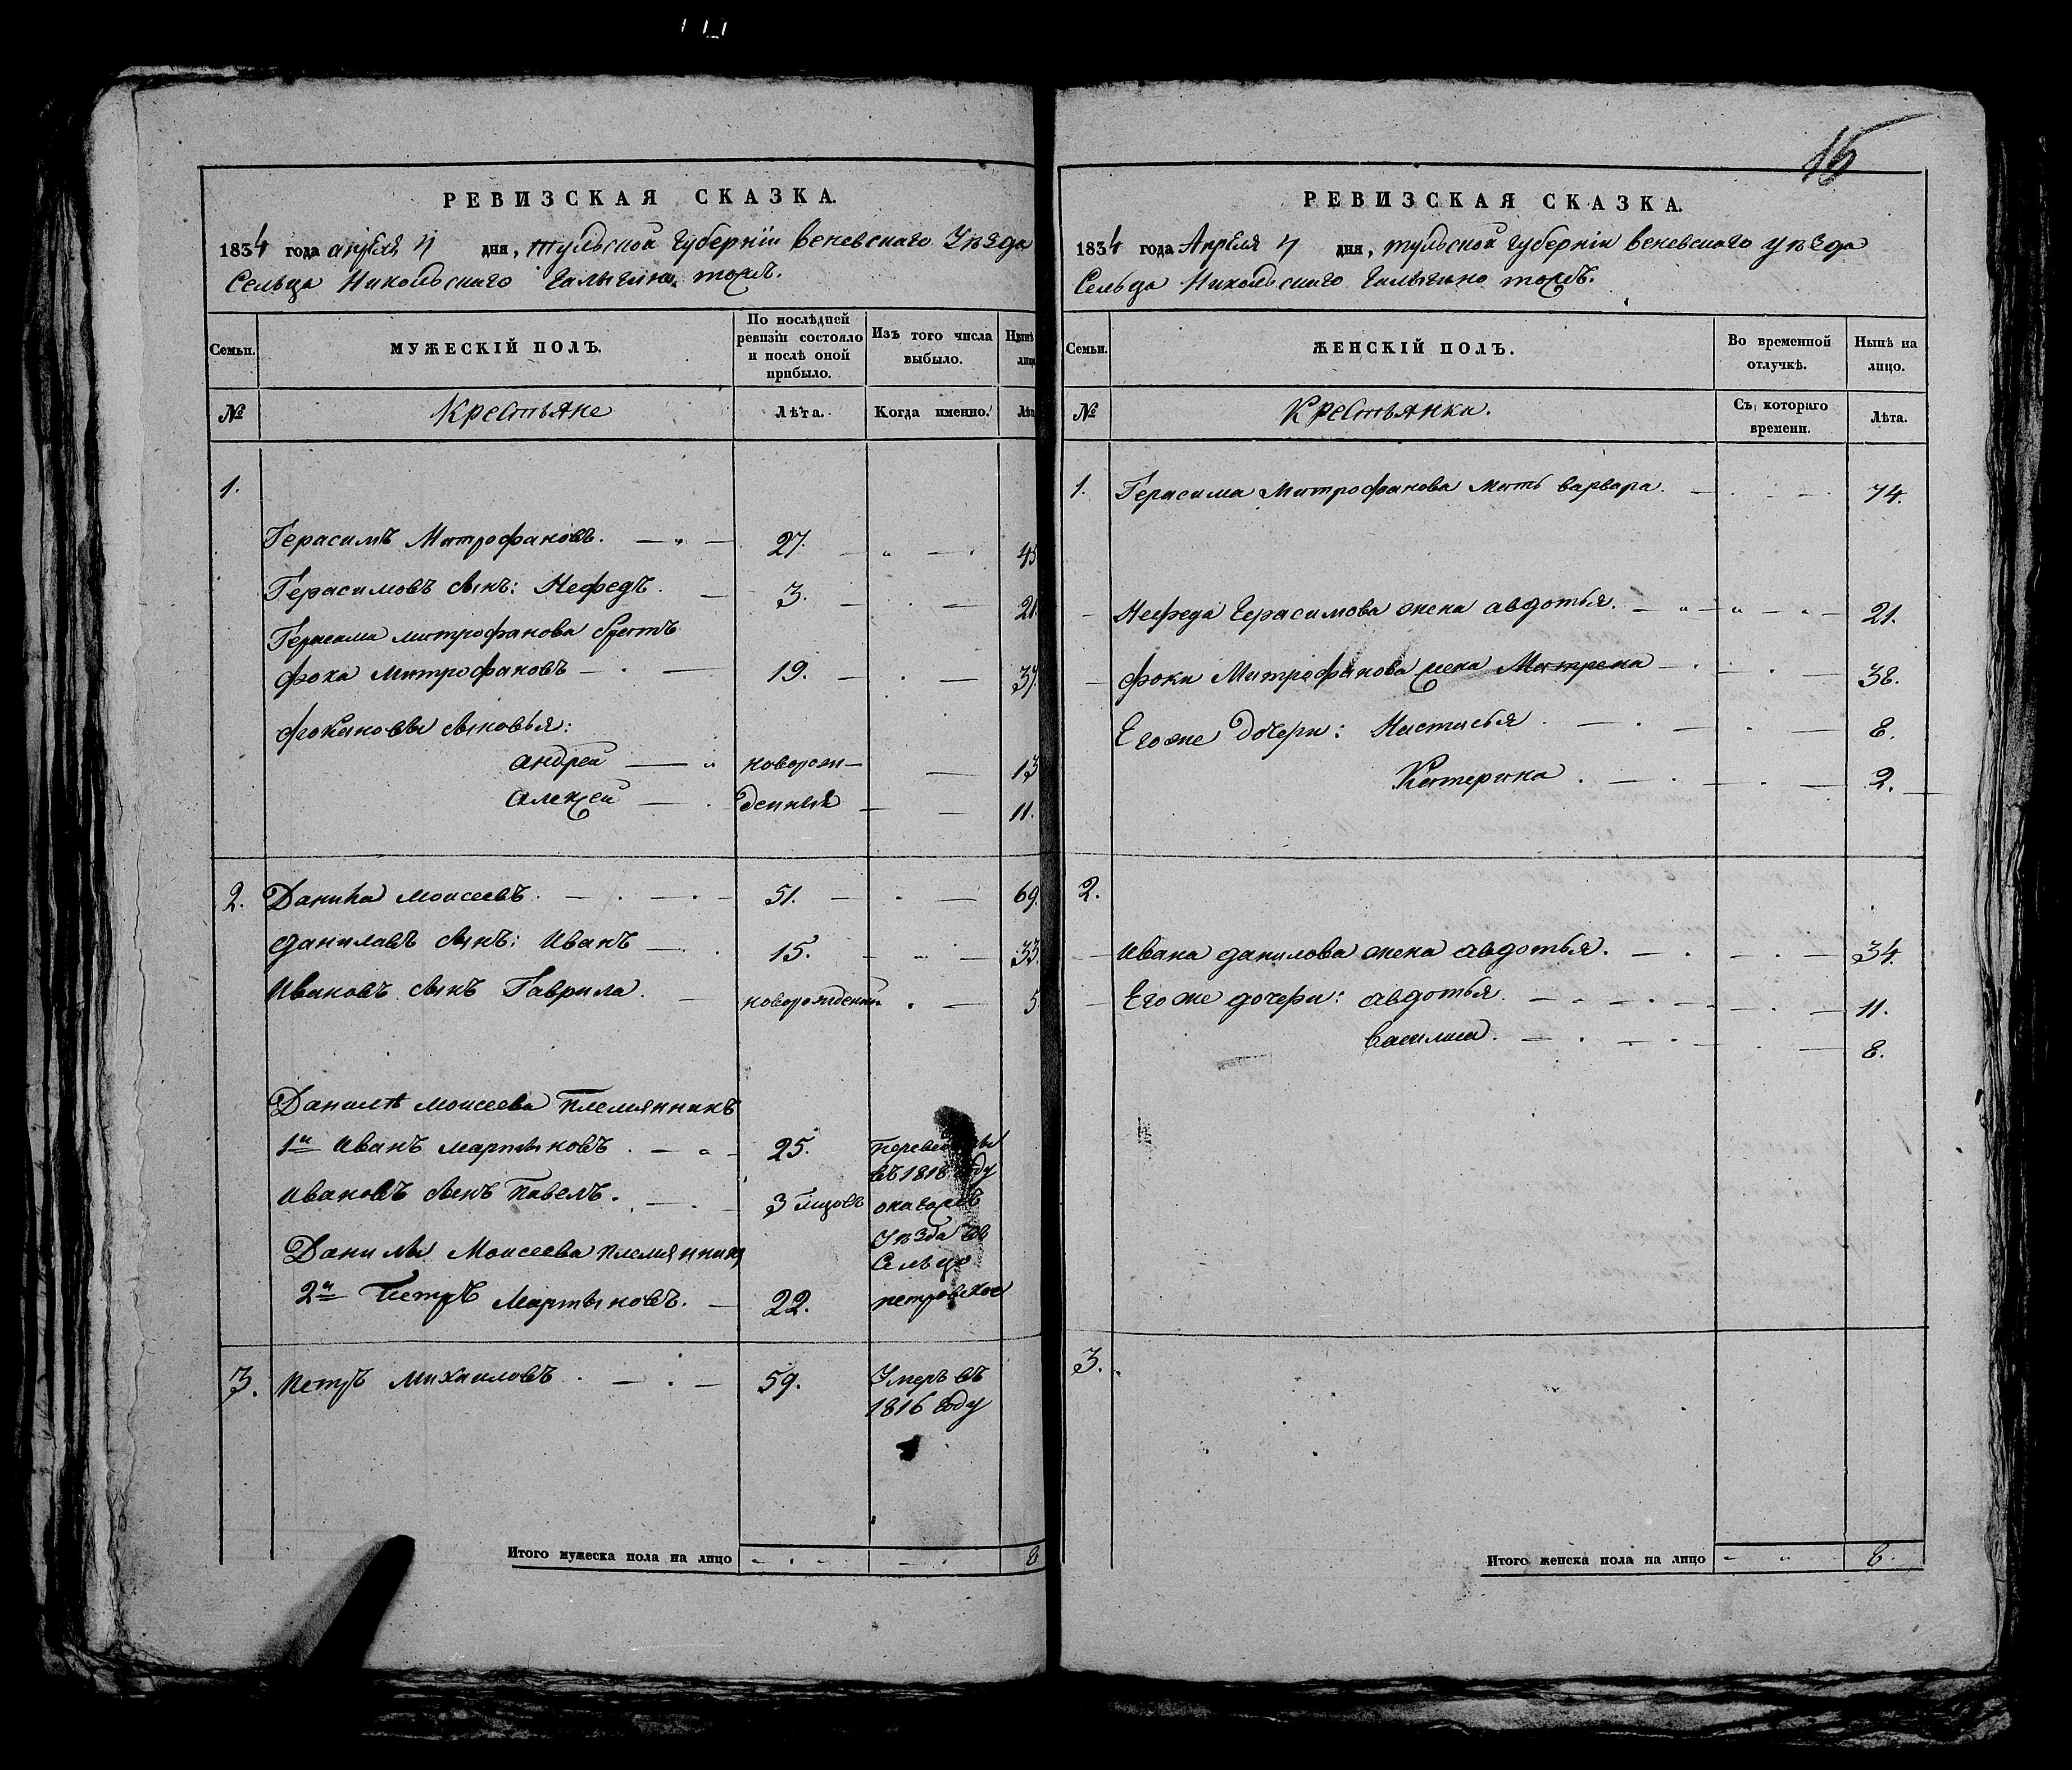 15
РЕВИЗСКАЯ СКАЗКА.
1834 года апреля 4 дня, тульской губерніи веневскаго Уезда
Сельца Никольскаго тожъ.
Семьи. МУЖЕСКІЙ ПОЛЪ. По послѣдней ревизіи состояло и послѣ оной прибыло. Изъ того числа выбыло.
№ Крестьяне Лѣта. Когда именно.
1.
Герасимъ Митрофановъ. 27. 45
Герасимовъ сынъ: Нефедъ. 3. 21
Герасима митрофанова братъ
фока митрофановъ 19. 37
фокиновы сыновья:
андрей новорож- 13
алексей денныя 11.
2. Данила моисеевъ. 51. 69.
данилавъ сынъ: Иванъ 15. 33.
Ивановъ сынъ Гаврила. новорожденны 5.
Данилы моисеева племянникъ
1й Иванъ мартыновъ. 25. переведены
въ 1818 году
Ивановъ сынъ павелъ. 3 мцовъ
Уезда въ
Данилы Моисеева племянникъ
Сельцо
2й Петръ Мартыновъ. 22. петровское
3. петръ михаиловъ. 59. Умеръ въ
1816 году
Итого мужеска пола на лицо 8
РЕВИЗСКАЯ СКАЗКА.
1834 года Апреля 4 дня, тульской губерніи веневскаго уезда
Сельца Никольскаго тожъ.
Семьи. ЖЕНСКІЙ ПОЛЪ. Во временной отлучкѣ. Нынѣ на лицо.
№ Крестьянки. Съ котораго времени. Лѣта.
1. Герасима Митрофанова мать варвара. 74.
Нефеда Герасимова жена авдотья. 21.
фоки Митрофанова жена Матрена 38.
Егоже дочери: Настасья. 8.
Катерина. 2.
2.
Ивана данилова жена авдотья. 34.
Егоже дочери: авдотья. 11.
василиса. 8.
3.
Итого женска пола на лицо 8.